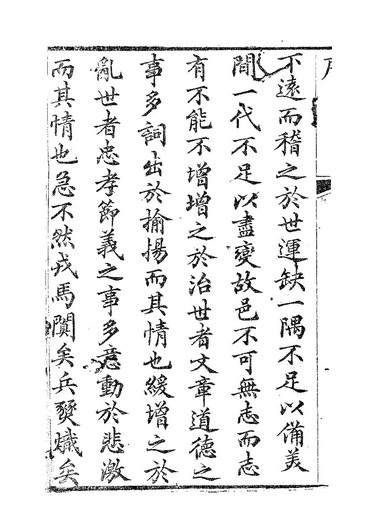 序
不遠而稽之於世運缺一隅不足以備美
間一代不足以盡變故邑不可無志而志
有不能不增增之於治世者文章道德之
事多詞出於揄揚而其情也緩增之於
亂世者忠孝節義之事多意動於悲激
而其情也急不然戎馬隳矣兵燹熾矣